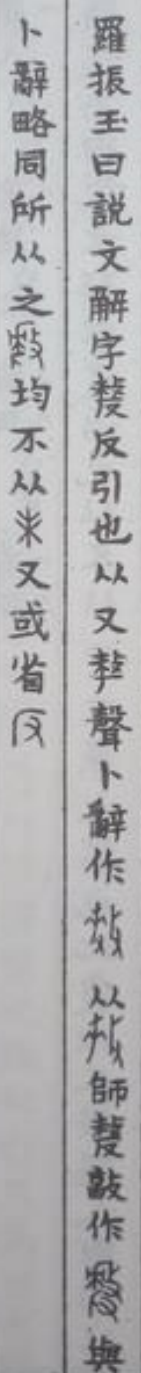 羅振玉曰說文解字氂反引也从又𠩺聲卜辭作从師氂敦作與
卜辭略同所从之均不从未又或省又